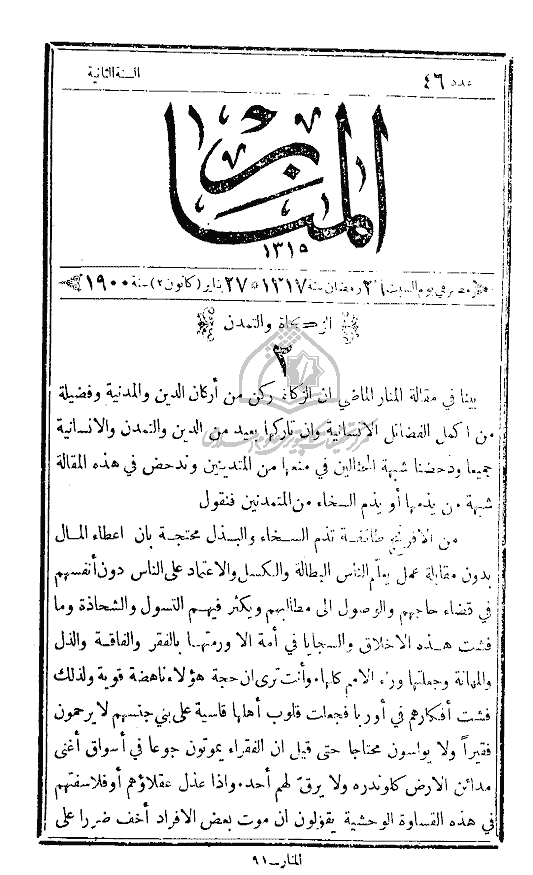 عدد ٤٦
السنة الثانية
المنار
١٣١٥
مصر في يوم السبت ٢٦ رمضان سنة ١٣١٧ * ٢٧ يناير (كانون ٢) سنة ١٩٠٠
الزكاة والتمدن
٢
بينا في مقالة المنار الماضي ان الزكاة ركن من أركان الدين والمدنية وفضيلة
من اكمل الفضائل الانسانية وان تاركها بعيد من الدين والتمدن والانسانية
جميعا ودحضنا شبهة المحتالين في منعها من المتدينين وندحض في هذه المقالة
شبهة من يذمها أو يذم السخاء من المتمدنين فنقول
من الافرنج طائفة تذم السخاء والبذل محتجة بان اعطاء المال
بدون مقابلة عمل يعلّم الناس البطالة والكسل والاعتماد على الناس دون أنفسهم
في قضاء حاجهم والوصول الى مطالبهم ويكثر فيهم التسول والشحاذة وما
فشت هذه الاخلاق والسجايا في أمة الا ورمتها بالفقر والفاقة والذل
والمهانة وجعلتها وراء الامم كلها. وأنت ترى ان حجة هؤلاء ناهضة قوية ولذلك
فشت أفكارهم في أوربا فجعلت قلوب أهلها قاسية على بني جنسهم لا يرحمون
فقيراً ولا يواسون محتاجا حتى قيل ان الفقراء يموتون جوعا في أسواق أغنى
مدائن الارض كلوندره ولا يرقّ لهم أحد. واذا عذل عقلاؤهم أو فلاسفتهم
في هذه القساوة الوحشية يقولون ان موت بعض الافراد أخف ضررا على
المنار ــ ٩١